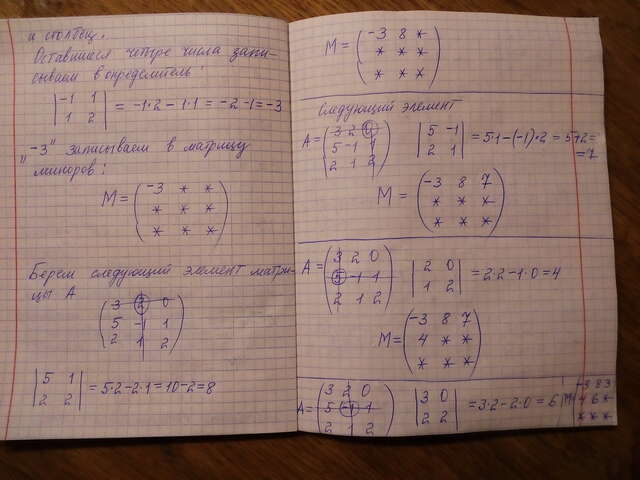 и столбец.
Оставшиеся четыре числа запи-
сываем в определитель:
|-1 1|
|1 2| = -1·2-1·1 = -2-1=-3
"-3" записываем в матрицу
миноров:
M = (-3 * *
* * *
* * *)
Берем следующий элемент матри-
цы A
(3 2 0
5 -1 1
2 1 2)
|5 1|
|2 2| = 5·2-2·1=10-2=8
M = (-3 8 *
* * *
* * *)
следующий элемент
A = (3 2 0
5 -1 1
2 1 2)
|5 -1|
|2 1| = 5·1-(-1)·2 = 5+2=
=7
M = (-3 8 7
* * *
* * *)
A = (3 2 0
5 -1 1
2 1 2)
|2 0|
|1 2| = 2·2-1·0=4
M = (-3 8 7
4 * *
* * *)
A = (3 2 0
5 -1 1
2 1 2)
|3 0|
|2 2| = 3·2-2·0 = 6
M= -3 8 3
4 6 *
* * *